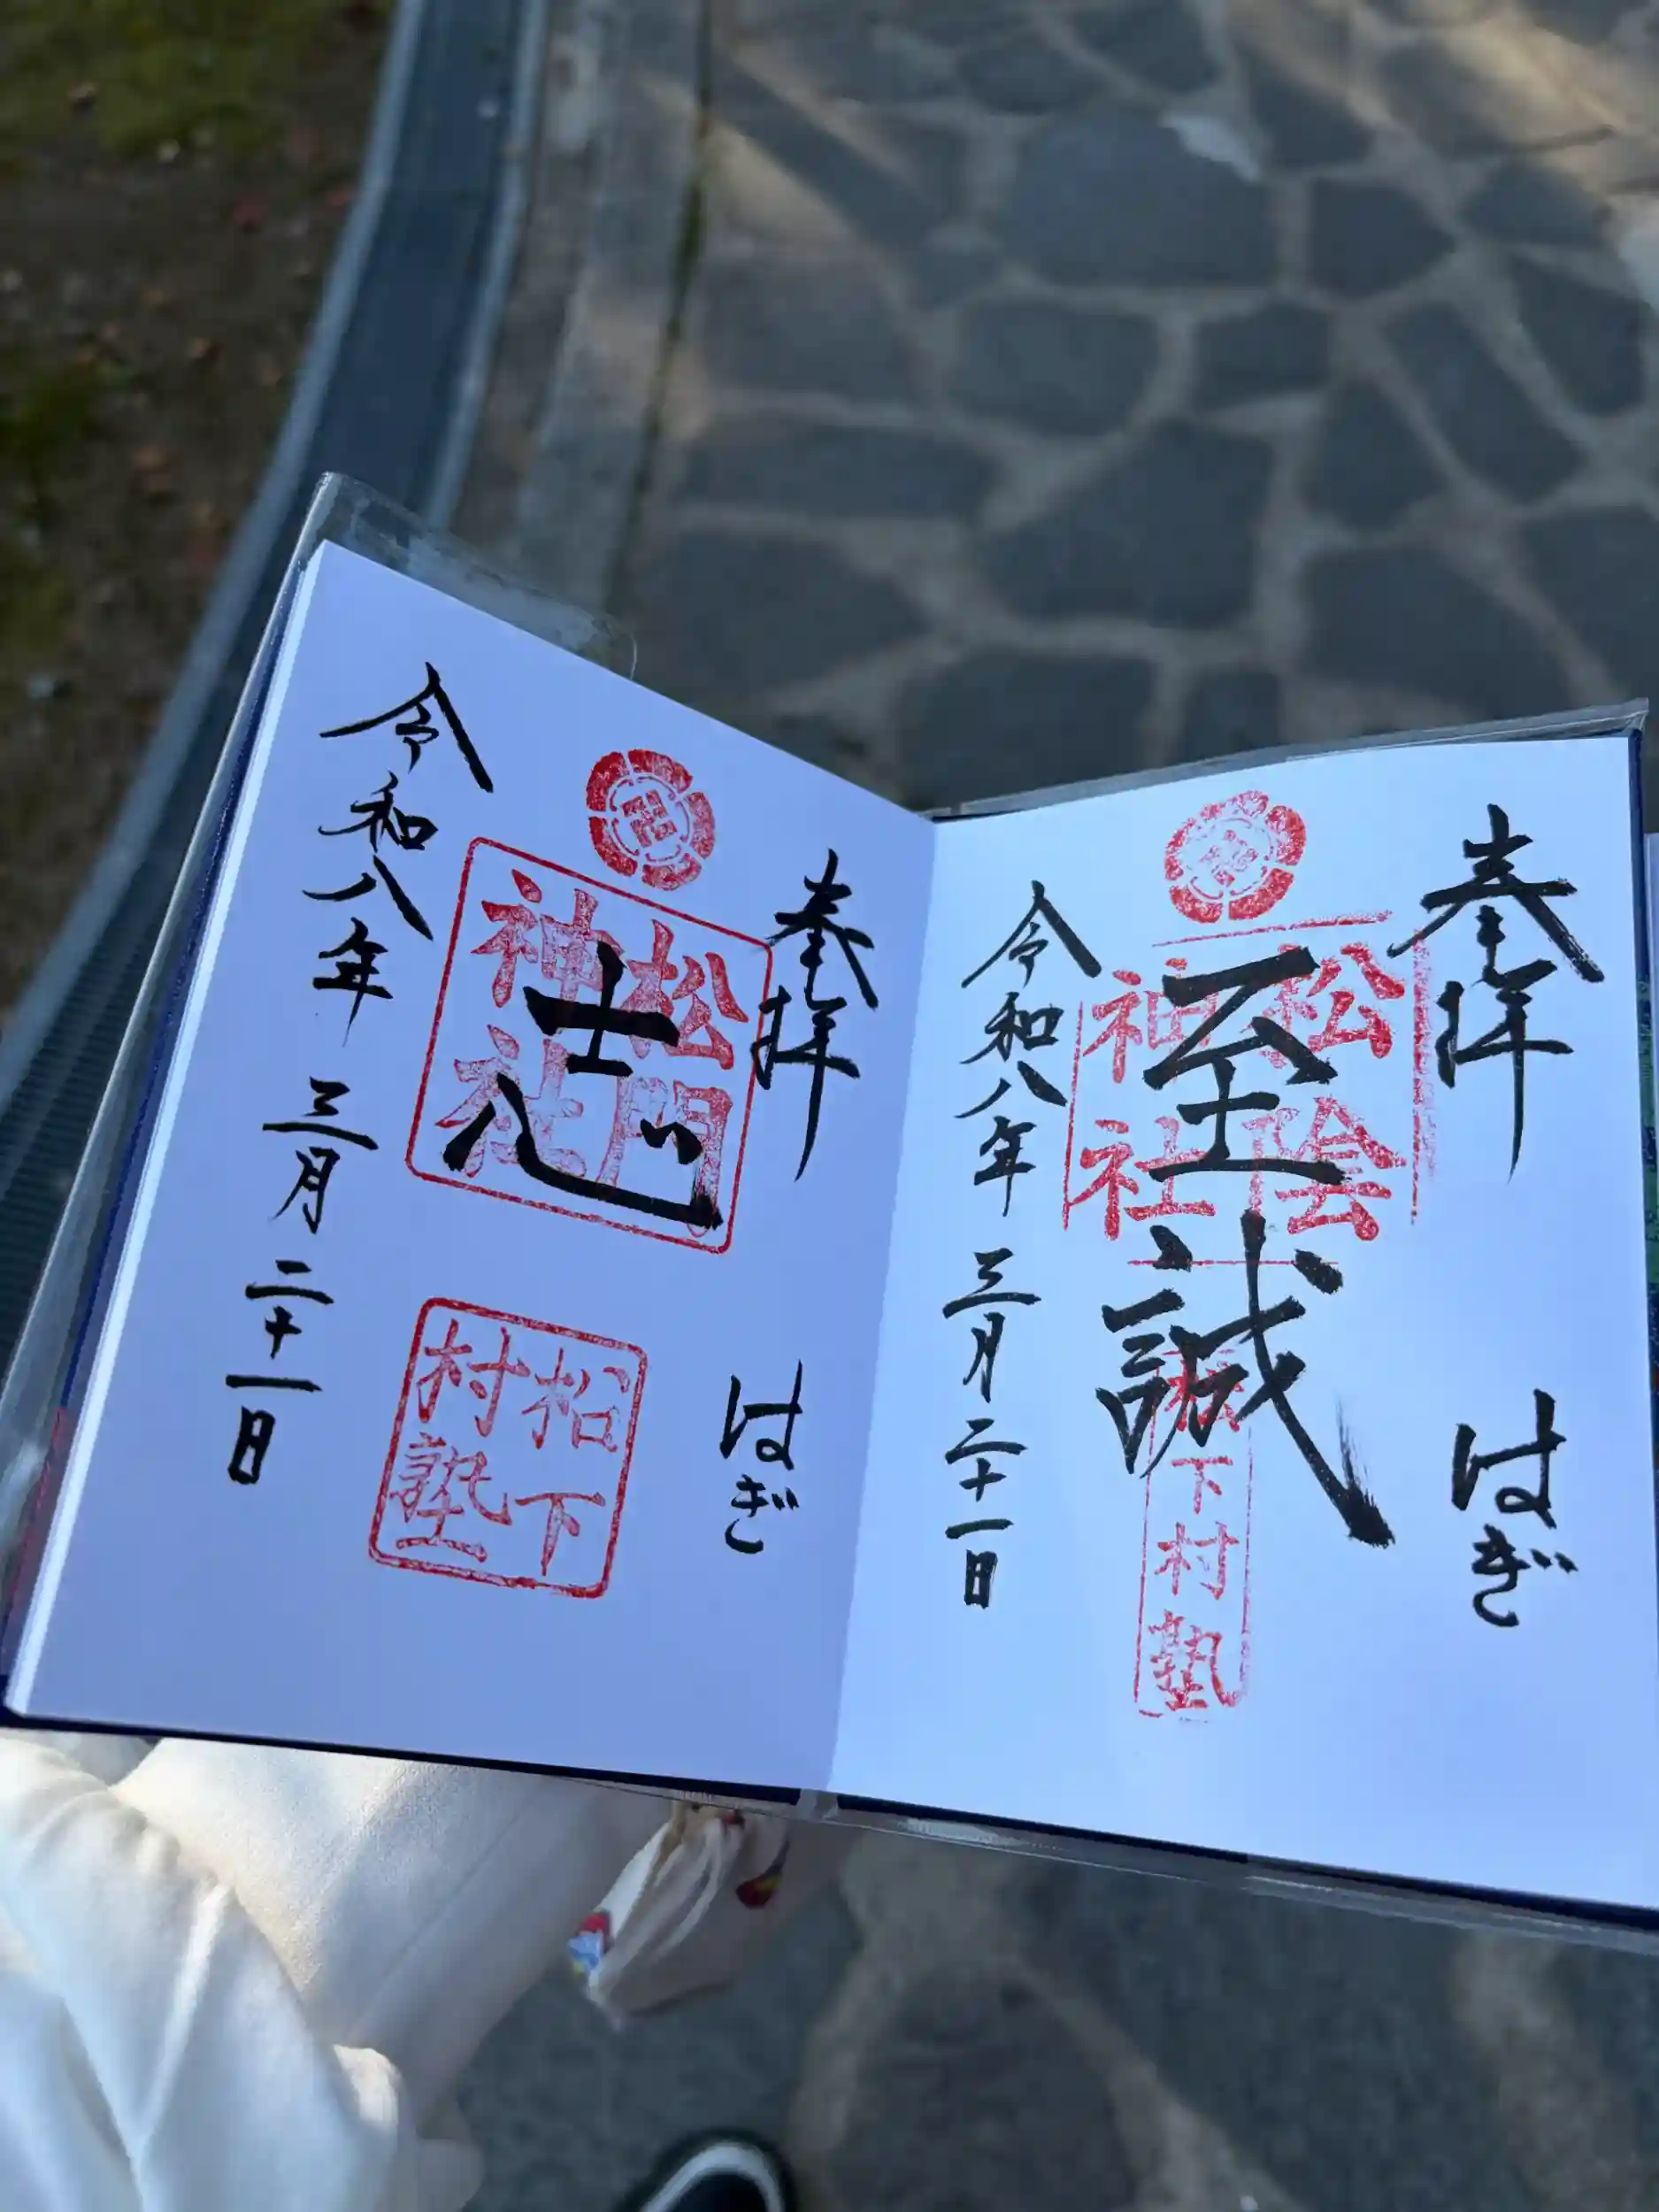 奉拝
はぎ
松陰
神社
至誠
松下村塾
令和八年
三月二十一日
奉拝
はぎ
松門
神社
志
松下
村塾
令和八年
三月二十一日